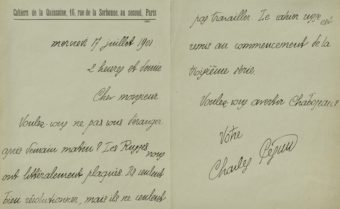 Cahiers de la Quinzaine, 16, rue de la Sorbonne, au second, Paris
mercredi 17 juillet 1901
2 heures et demie
Cher monsieur
Voulez vous ne pas vous déranger
après demain matin? Les nous
ont littéralement plaqués. Ils veulent
bien révolutionner, mais ils ne veulent
pas travailler. Le cahier est
remis au commencement de la
troisième série.
Voulez vous avertir
Votre
Charles Péguy